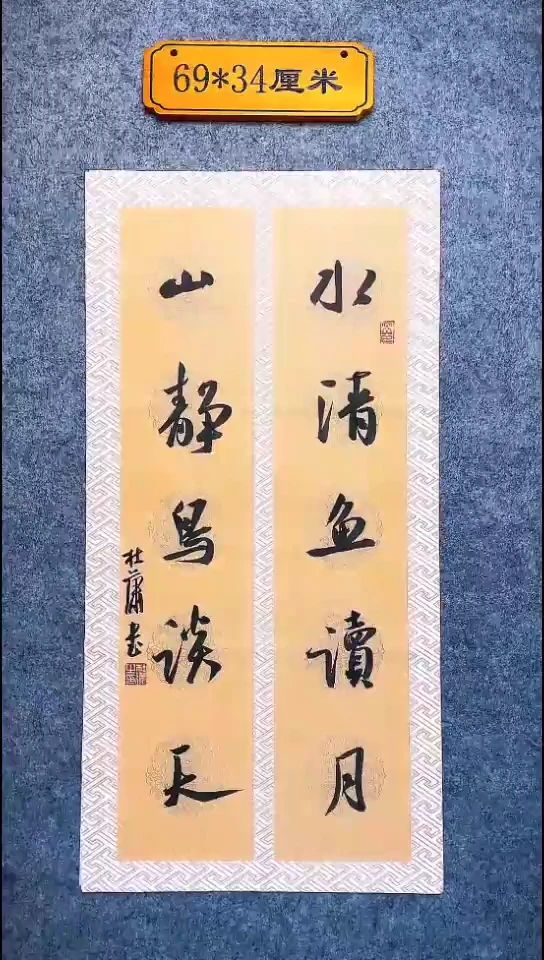 69*34厘米
水清鱼讀月
山静鸟谈天
杜萧书